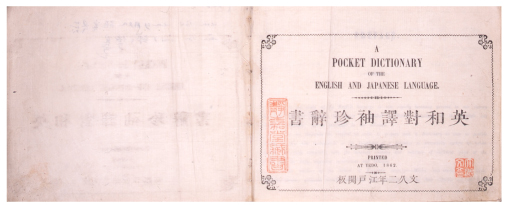 A
POCKET DICTIONARY
OF THE
ENGLISH AND JAPANESE LANGUAGE.
書辭珍袖譯對和英
PRINTED
AT YEDO. 1862.
文久二年江戸開板